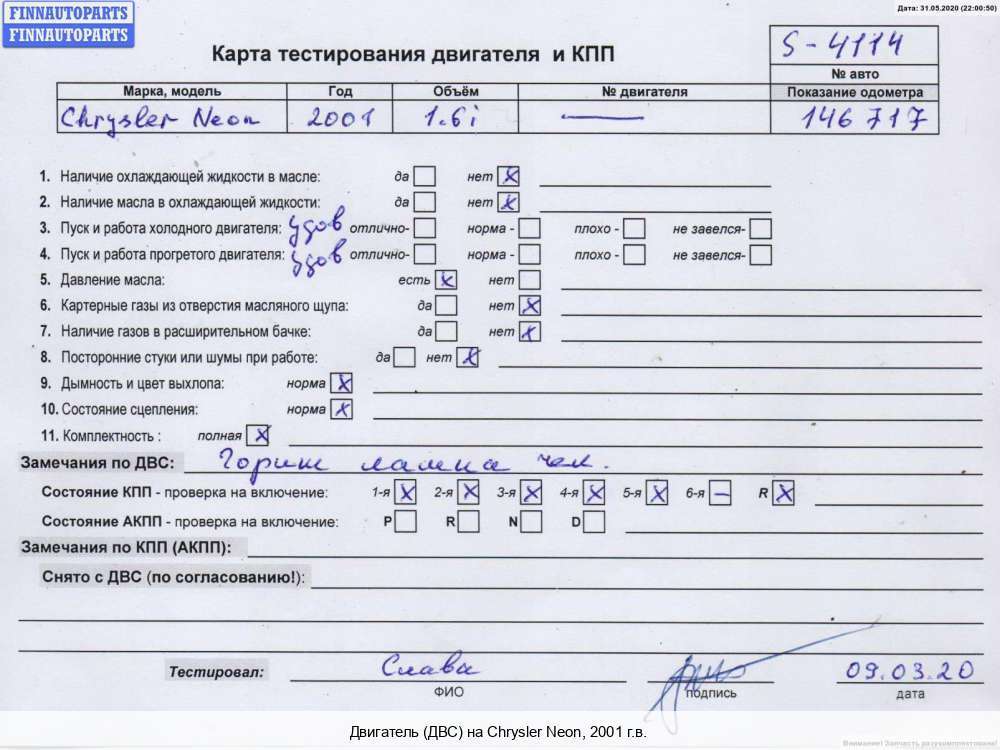 FINNAUTOPARTS
FINNAUTOPARTS
Дата: 31.05.2020 (22:00:50)
S-4114
Карта тестирования двигателя и КПП
№ авто
Марка, модель Год Объём № двигателя Показание одометра
Chrysler Neon 2001 1.6i — 146 717
1. Наличие охлаждающей жидкости в масле: да нет x
2. Наличие масла в охлаждающей жидкости: да нет x
3. Пуск и работа холодного двигателя: удов отлично- норма - плохо - не завелся-
4. Пуск и работа прогретого двигателя: удов отлично- норма - плохо - не завелся-
5. Давление масла: есть x нет
6. Картерные газы из отверстия масляного щупа: да нет x
7. Наличие газов в расширительном бачке: да нет x
8. Посторонние стуки или шумы при работе: да нет x
9. Дымность и цвет выхлопа: норма x
10. Состояние сцепления: норма x
11. Комплектность : полная x
Замечания по ДВС: Горит лампа чек.
Состояние КПП - проверка на включение: 1-я x 2-я x 3-я x 4-я x 5-я x 6-я – R x
Состояние АКПП - проверка на включение: P R N D
Замечания по КПП (АКПП):
Снято с ДВС (по согласованию!):
Тестировал: Слава 09.03.20
ФИО подпись дата
Двигатель (ДВС) на Chrysler Neon, 2001 г.в.
Внимание! Запчасть разукомплектована!